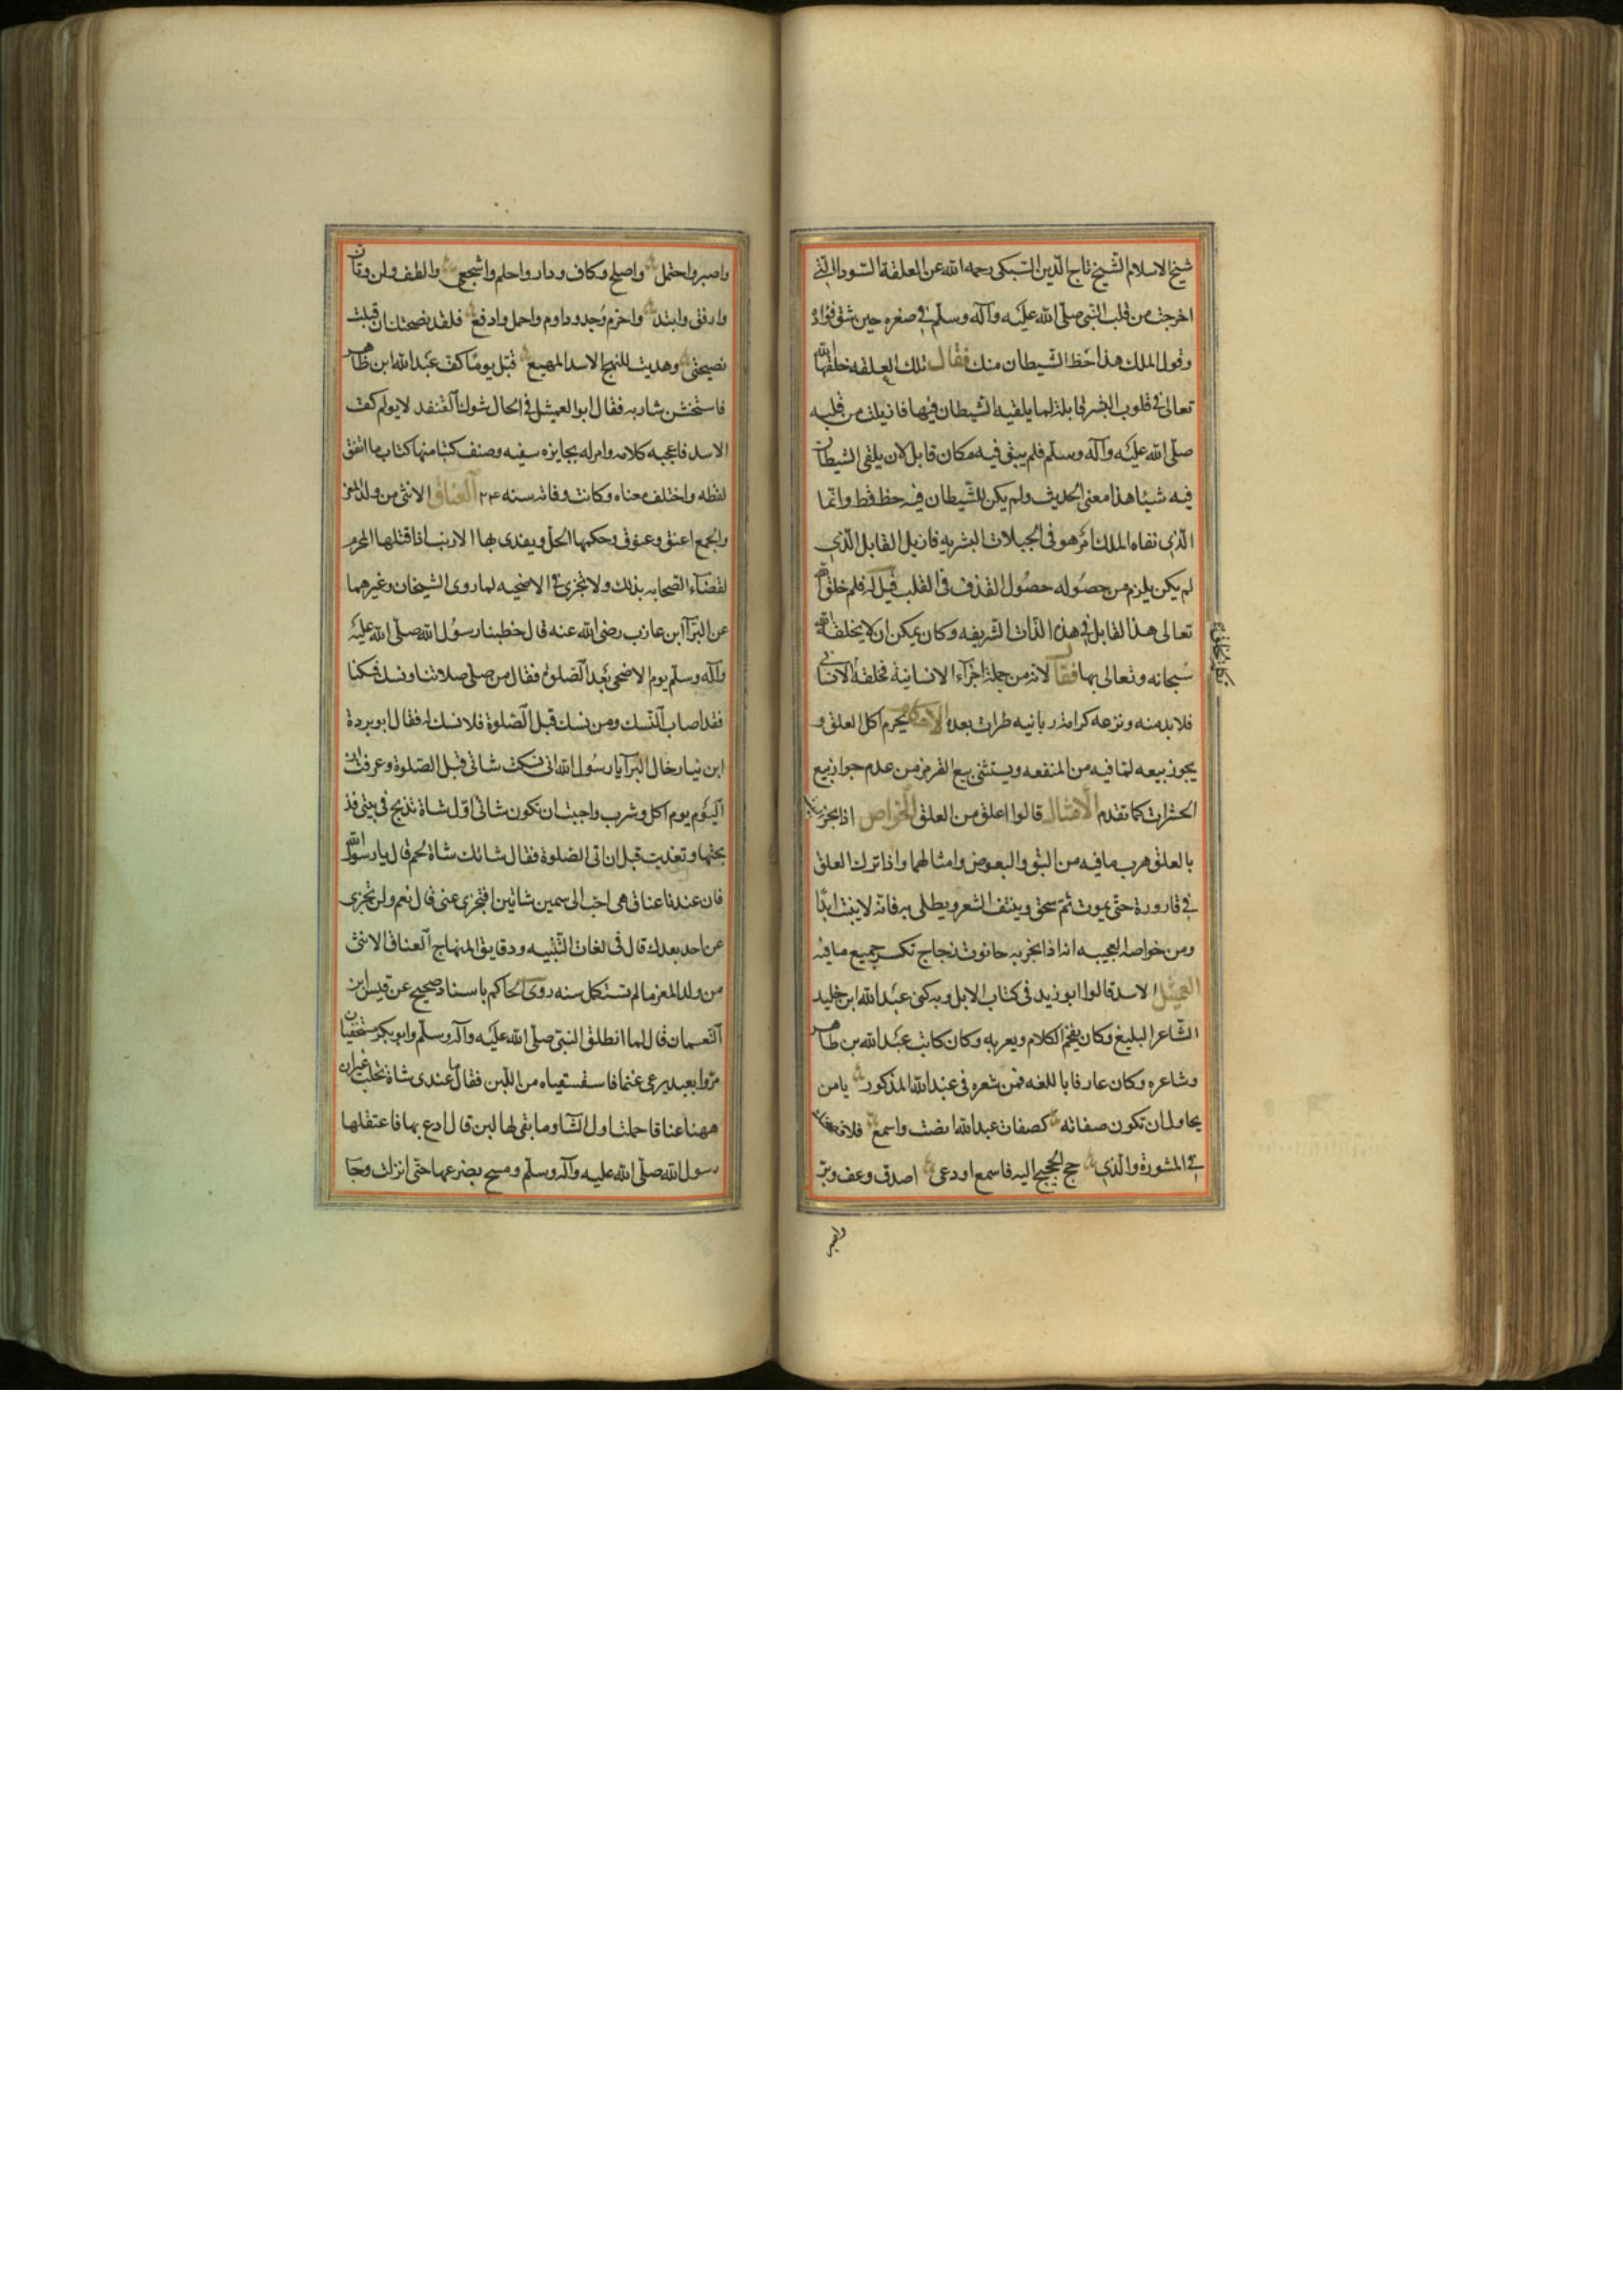 شيخ الاسلام الشيخ تاج الدين السبكى رحمه الله عن العلقة السودا التى
اخرجت من قلب النبى صلى الله عليه وآله وسلم فى صغره حين شق فواده
وقول الملك هذا حظ الشيطان منك فقال تلك العلقه خلقها الله
تعالى فى قلوب البشر قابلة لما يلقيه الشيطان فيها فازيلت من قلبه
صلى الله عليه وآله وسلم فلم يبق فيه مكان قابل لان يلقى الشيطان
فيه شيئا هذا معنى الحديث ولم يكن للشيطان فيه حظ قط وانما
الذى نفاه الملك امر هو فى الجبلات البشريه فازيل القابل الذى
لم يكن يلزم من حصوله حصول القذف فى القلب قيل له فلم خلق الله
تعالى هذا القابل فى هذه الذات الشريفه وكان يمكن ان لا يخلقه الله
سبحانه وتعالى بها فقال لانه من جملة اجزآء الانسانية فخلقه
فلا بد منه ونزعه كرامة ربانيه طرات بعده الاحكام يحرم اكل العلق و
يجوز بيعه لما فيه من المنفعه ويستثنى بيع القرمز من عدم جواز بيع
الحشرات كما تقدم الامثال قالوا اعلق من العلق الخواص اذا بخر
بالعلق هرب ما فيه من البق والبعوض وامثالهما واذا ترك العلق
فى قارورة حتى يموت ثم سحق وينتف الشعر ويطلى به فانه لا ينبت ابدا
ومن خواصه العجيبه انه اذا بخر به حانوت زجاج تكسر جميع ما فيه
العميثل الاسد قالوا ابو زيد فى كتاب الابل وبه كنى عبد الله ابن خليد
الشاعر البليغ وكان يفخم الكلام ويعربه وكان كاتب عبد الله بن طاهر
وشاعره وكان عارفا باللغه فمن شعره فى عبد الله المذكور يا من
يحاول ان تكون صفاته كصفات عبد الله انصت واسمع
فى المشورة والذى حج الحجيج اليه فاسمع او دعى اصدق وعف وبر
واصبر
واصبر واحتمل واصلح وكاف ودار واحلم واشجع والطف ولن وتان
وارفق وابتد واحزم وجد وداوم واحمل وادفع فلقد نصحتك ان قبلت
نصيحتى وهديت للنهج الاسد المهيع قبل يوما كف عبد الله ابن ظاهر
فاستخشن شاربه فقال ابو العميثل فى الحال شوك القنفد لا يولم كف
الاسد فاعجبه كلامه وامر له بجايزه سنيه وصنف كتبا منها كتاب ما اتفق
لفظه واختلف معناه وكانت وفاته سنه ٢٤٠ العناق الانثى من ولد المعز
والجمع اعنق وعنوق وحكمها الحل ويفدى بها الارنب اذا قتلها المحرم
لقضآء الصحابه بذلك ولا تجزى فى الاضحيه لما روى الشيخان وغيرهما
عن البرآ ابن عازب رضى الله عنه قال خطبنا رسول الله صلى الله عليه
وآله وسلم يوم الاضحى بعد الصلوة فقال من صلى صلاتنا ونسك نسكنا
فقد اصاب النسك ومن نسك قبل الصلوة فلا نسك له فقال ابو بردة
ابن نيار خال البرآ يا رسول الله انى نسكت شاتى قبل الصلوة وعرفت ان
اليوم يوم اكل وشرب واحببت ان تكون شاتى اول شاة تذبح فى بيتى فذ
بحتها وتغديت قبل ان اتى الصلوة فقال شاتك شاة لحم قال يا رسول الله
فان عندنا عناق هى احب الى من شاتين افتجزى عنى قال نعم ولن تجزى
عن احد بعدك قال فى لغات التنبيه ودقايق المنهاج العناق الانثى
من ولد المعز ما لم تستكمل سنه روى الحاكم باسناد صحيح عن قيس ابن
النعمان قال لما انطلق النبى صلى الله عليه وآله وسلم وابو بكر مستخفيان
مروا بعبد يرعى غنما فاستسقياه من اللبن فقال ما عندى شاة تحلب غير ان
ههنا عناقا حملت اول الشآء وما بقى لها لبن قال ادع بها فاعتقلها
رسول الله صلى الله عليه وآله وسلم ومسح بضرعها حتى انزلت وجا